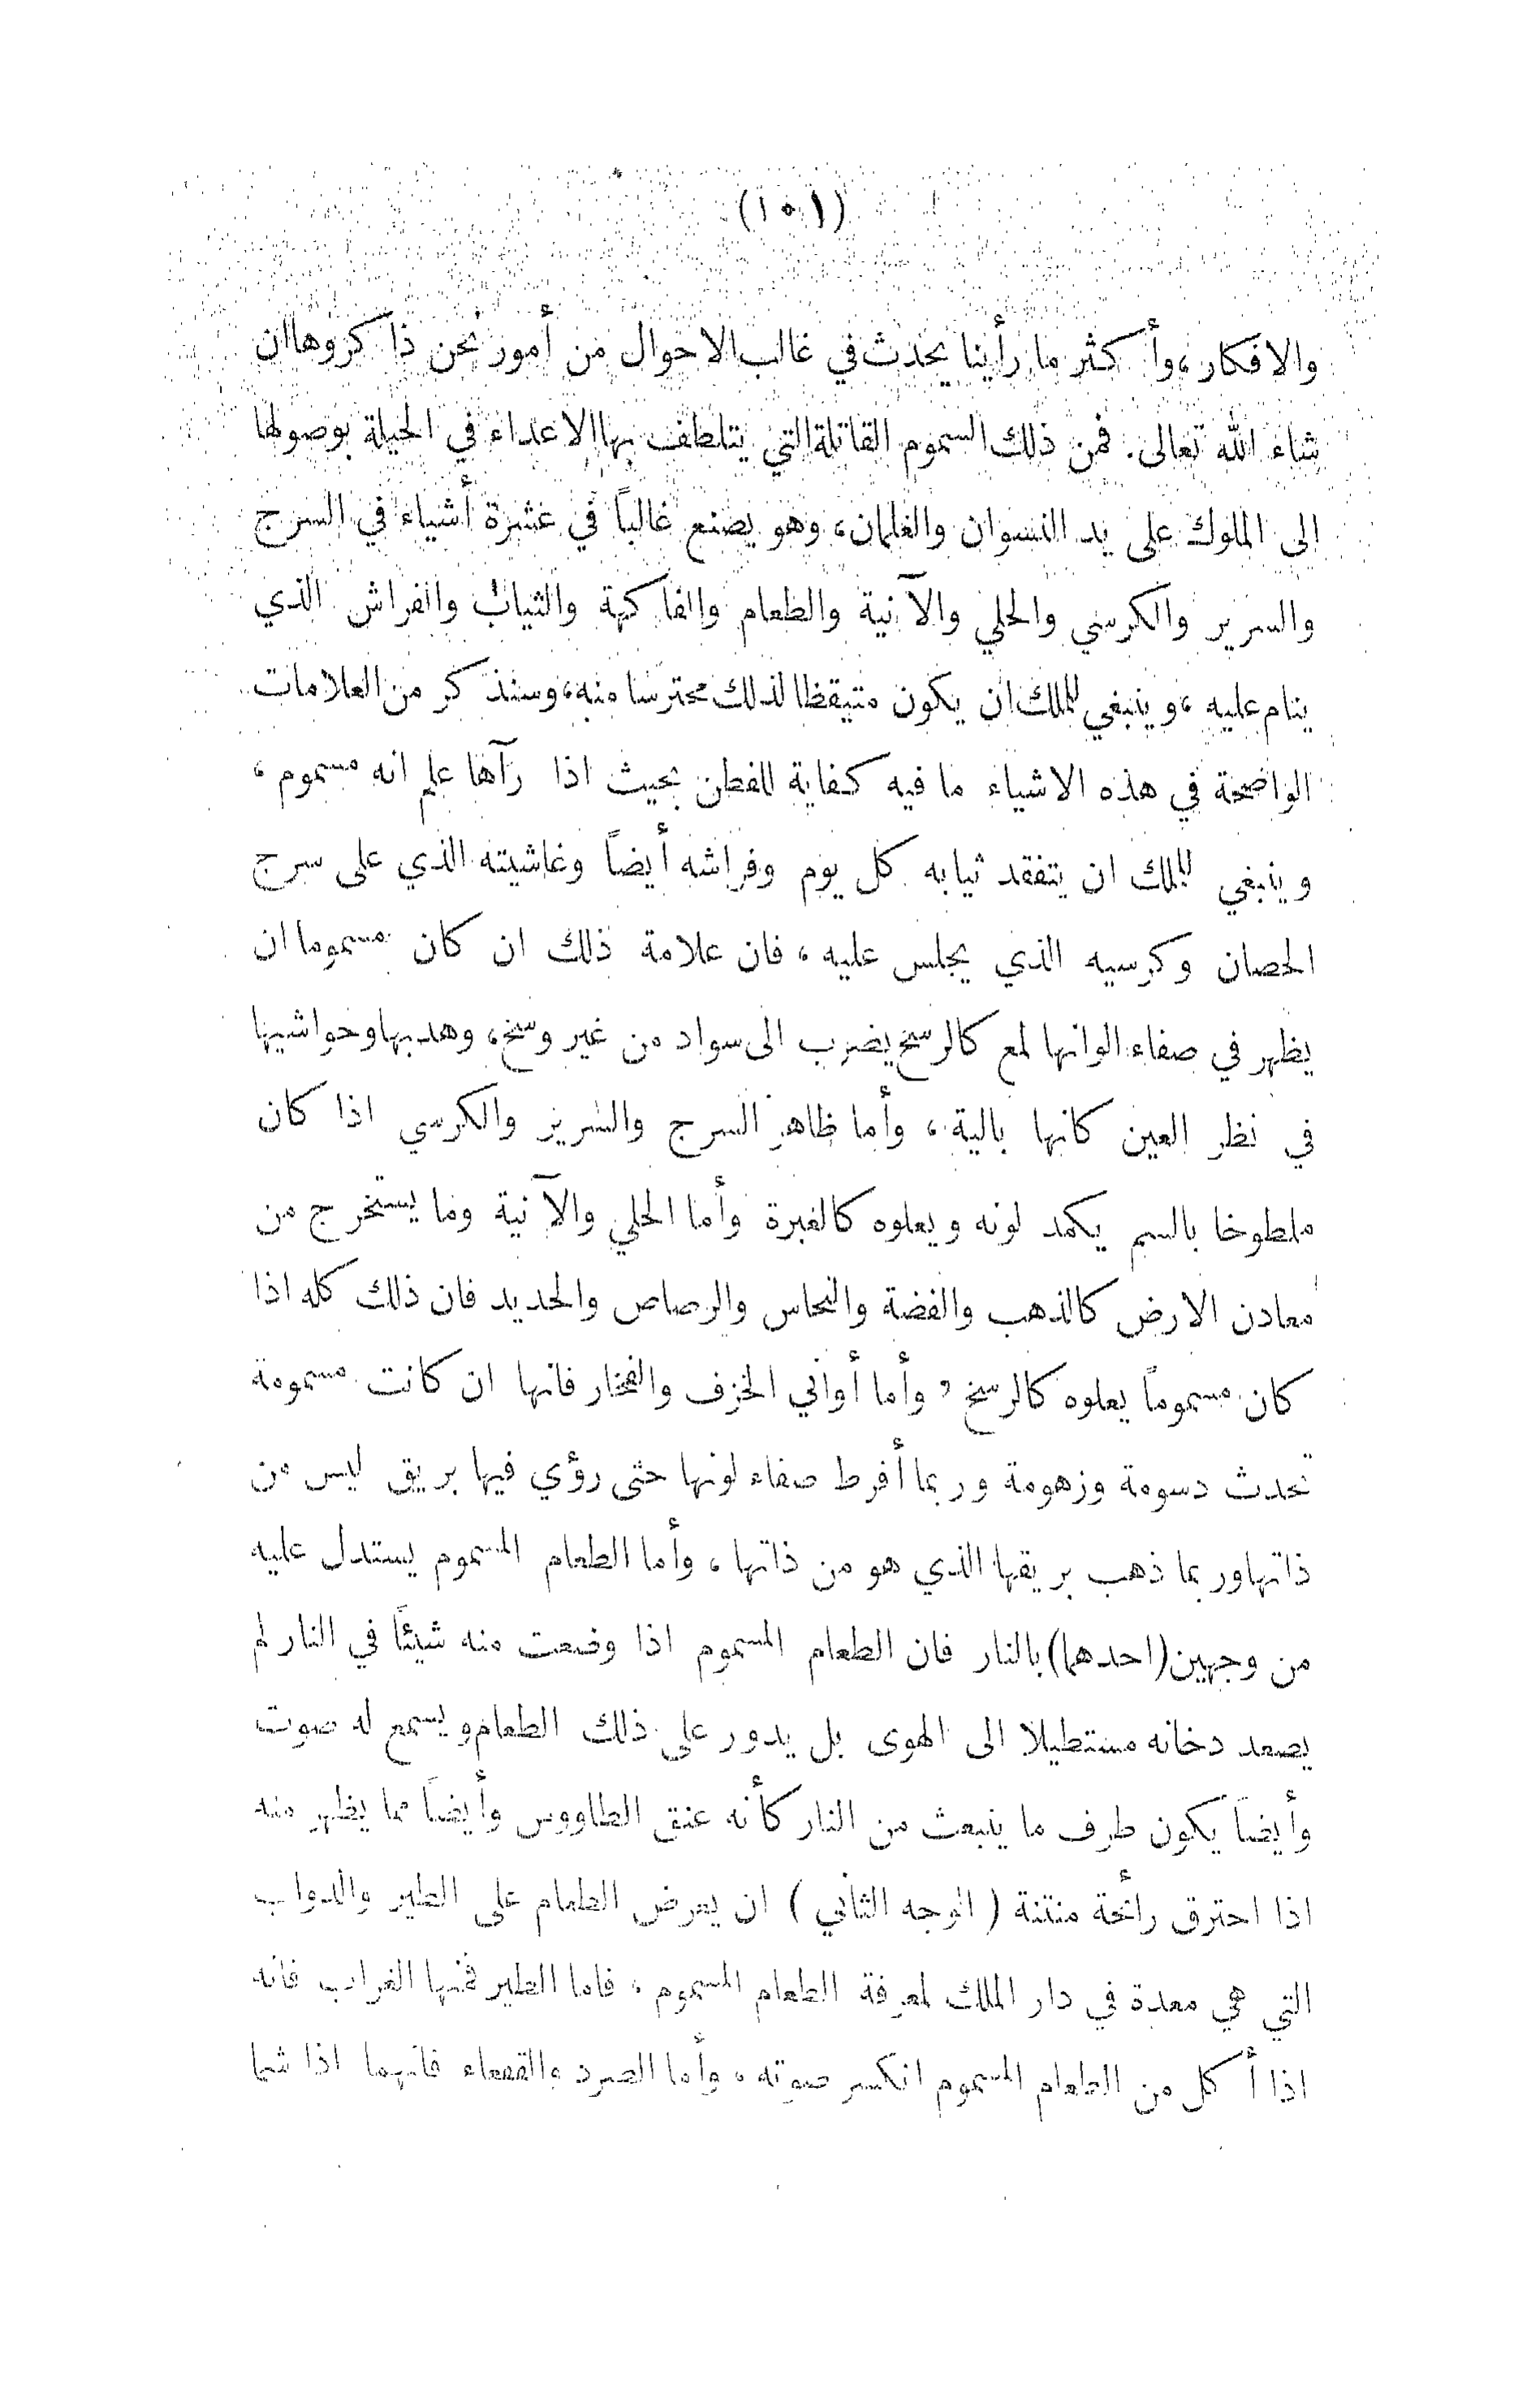 (١٥١)
والافكار، وأكثر ما رأينا يحدث في غالب الاحوال من أمور نحن ذاكروها ان
شاء الله تعالى. فمن ذلك السموم القاتلة التي يتلطف بها الاعداء في الحيلة بوصولها
الى الملوك على يد النسوان والغلمان، وهو يصنع غالباً في عشرة أشياء في السرج
والسرير والكرسي والحلي والآنية والطعام والفاكهة والثياب والفراش الذي
ينام عليه، وينبغي للملك ان يكون متيقظا لذلك محترسا منه، وسنذكر من العلامات
الواضحة في هذه الاشياء ما فيه كفاية للفطن بحيث اذا رآها علم انه مسموم،
وينبغي للملك ان يتفقد ثيابه كل يوم وفراشه أيضاً وغاشيته الذي على سرج
الحصان وكرسيه الذي يجلس عليه، فان علامة ذلك ان كان مسموما ان
يظهر في صفاء الوانها لمع كالرسخ يضرب الى سواد من غير وسخ، وهدبها وحواشيها
في نظر العين كانها بالية، وأما ظاهر السرج والسرير والكرسي اذا كان
ملطوخا بالسم يكمد لونه ويعلوه كالغبرة وأما الحلي والآنية وما يستخرج من
معادن الارض كالذهب والفضة والنحاس والرصاص والحديد فان ذلك كله اذا
كان مسموماً يعلوه كالرسخ، وأما أواني الخزف والفخار فانها ان كانت مسمومة
تحدث دسومة وزهومة وربما أفرط صفاء لونها حتى رؤي فيها بريق ليس من
ذاتها وربما ذهب بريقها الذي هو من ذاتها، وأما الطعام المسموم يستدل عليه
من وجهين (احدهما) بالنار فان الطعام المسموم اذا وضعت منه شيئاً في النار لم
يصعد دخانه مستطيلا الى الهوى بل يدور على ذلك الطعام ويسمع له صوت
وأيضاً يكون طرف ما ينبعث من النار كأنه عنق الطاووس وأيضاً مما يظهر منه
اذا احترق رائحة منتنة (الوجه الثاني) ان يعرض الطعام على الطير والدواب
التي هي معدة في دار الملك لمعرفة الطعام المسموم، فاما الطير فمنها الغراب فانه
اذا أكل من الطعام المسموم انكسر صوته، وأما الصرد والقعقاء فانهما اذا شما